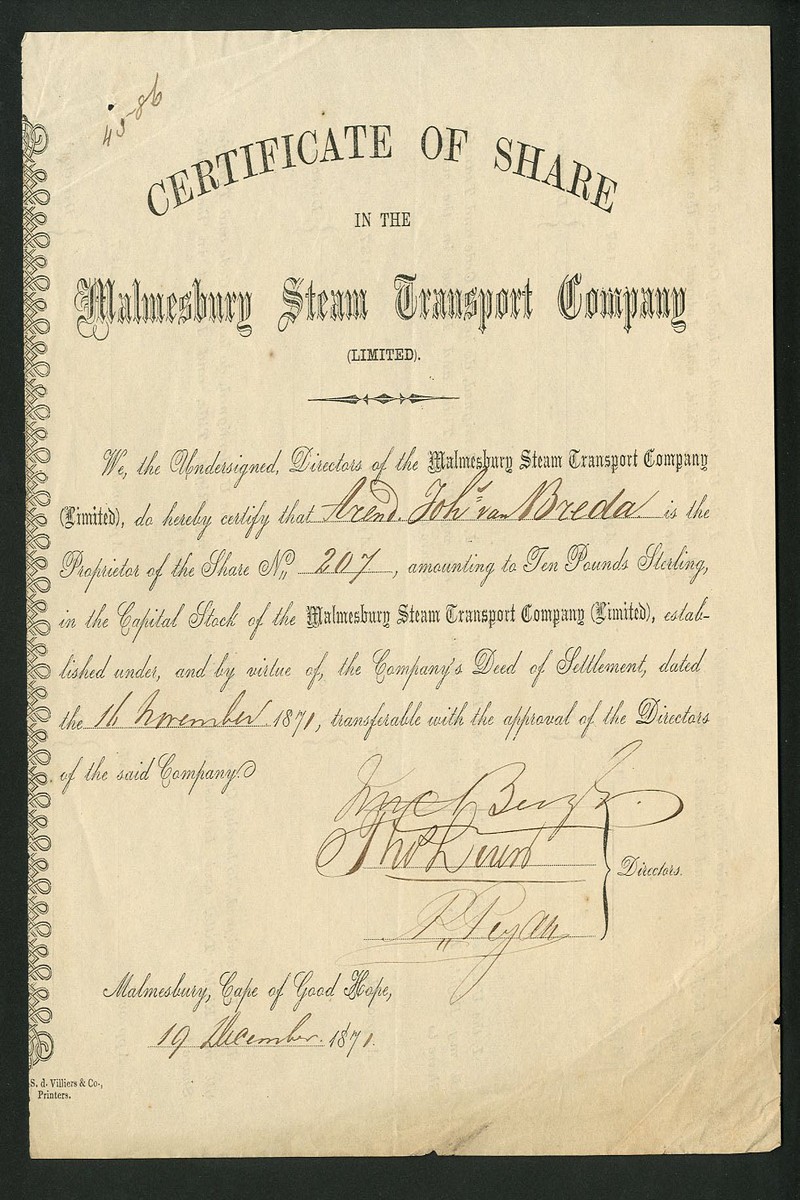 45-86
CERTIFICATE OF SHARE
IN THE
Malmesbury Steam Transport Company
(LIMITED).
We, the Undersigned, Directors of the Malmesbury Steam Transport Company
(Limited), do hereby certify that Arend. Johs van Breda is the
Proprietor of the Share No, 207, amounting to Ten Pounds Sterling,
in the Capital Stock of the Malmesbury Steam Transport Company (Limited), estab-
lished under, and by virtue of, the Company's Deed of Settlement, dated
the 16 November 1871, transferable with the approval of the Directors
of the said Company.
Directors.
Malmesbury, Cape of Good Hope,
19 December 1871.
S. d. Villiers & Co.,
Printers.